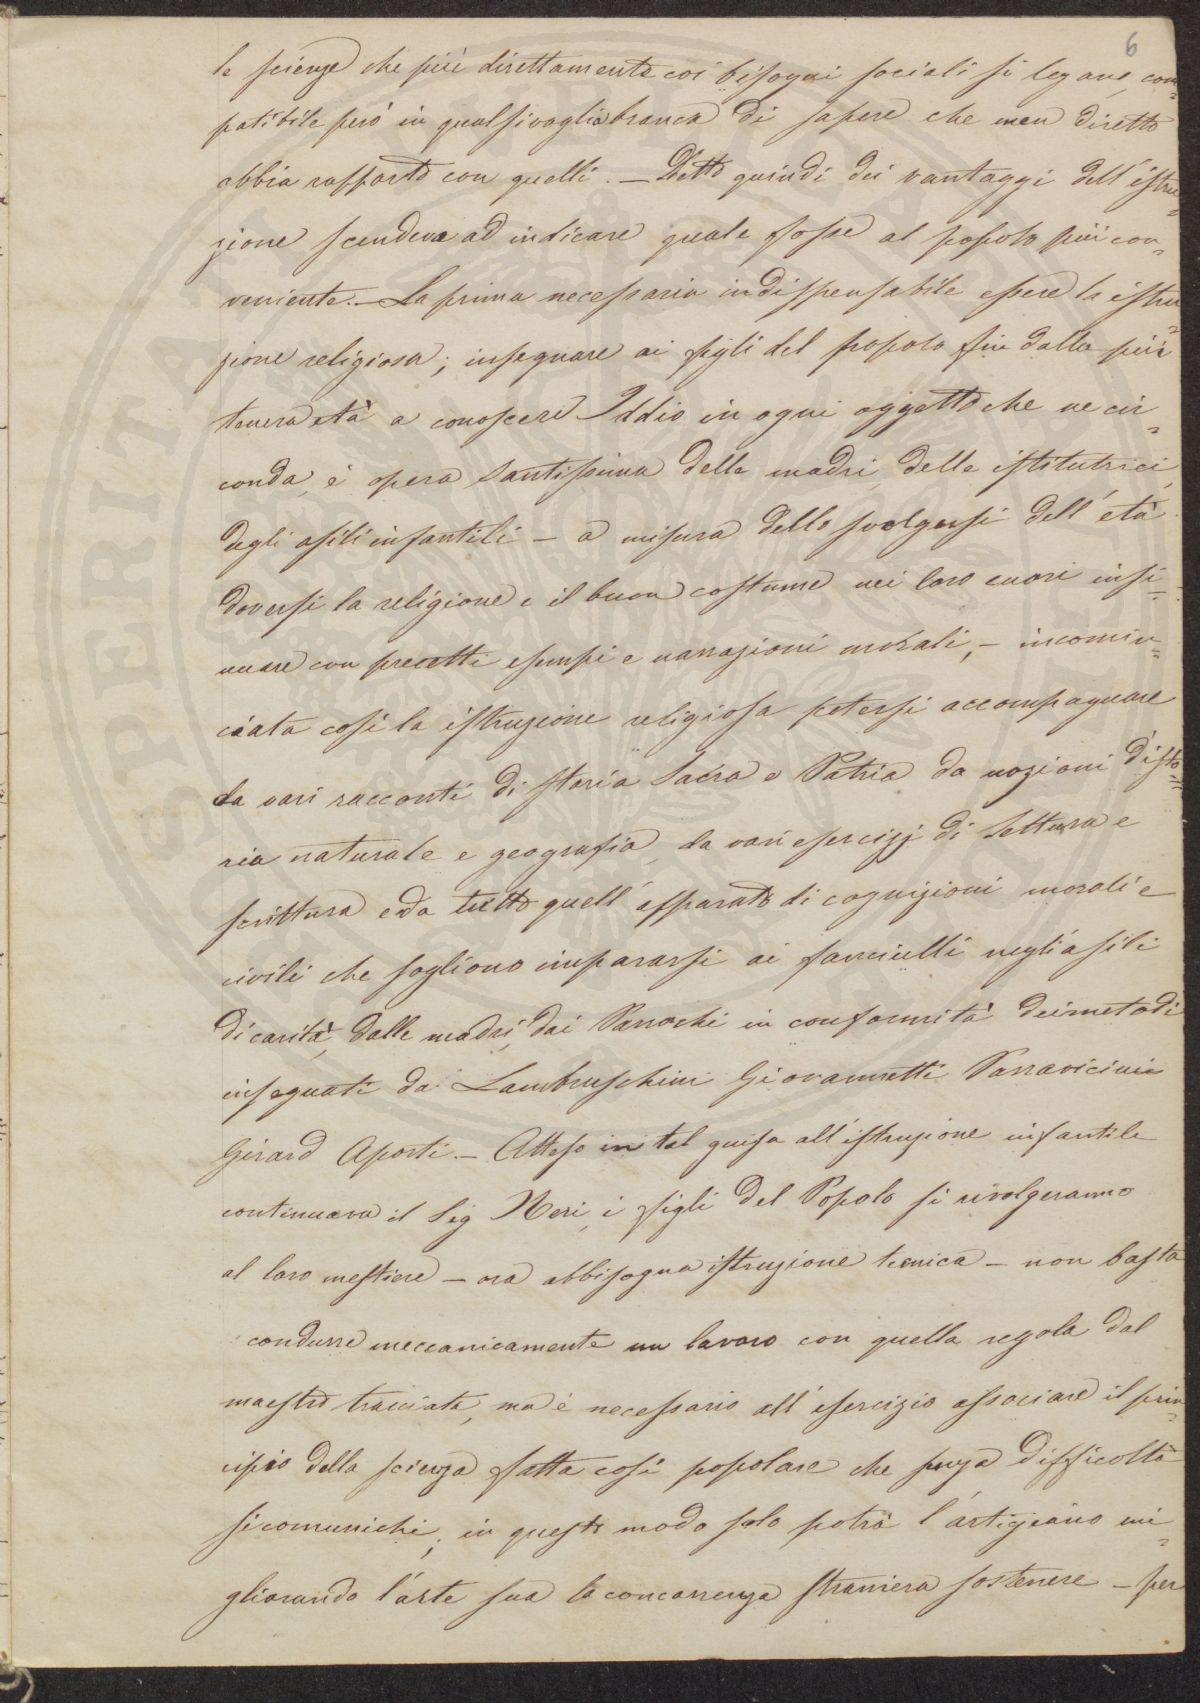 6
le scienze che più direttamente coi bisogni sociali si legano, com=
patibile però in qualsivoglia branca di sapere che men diretto
abbia rapporto con quelli. — Detto quindi dei vantaggi dell'istru=
zione scendeva ad indicare quale fosse al popolo più con=
veniente. — La prima necessaria indispensabile essere la istru=
zione religiosa; insegnare ai figli del popolo fin dalla più
tenera età a conoscere Iddio in ogni oggetto che ne cir=
conda, è opera Santissima delle madri, delle istitutrici,
degli asili infantili — a misura dello svolgersi dell'età
doversi la religione e il buon costume nei loro cuori insi=
nuare con precetti esempi e narrazioni morali, — incomin=
ciata così la istruzione religiosa potersi accompagnare
da vari racconti di storia Sacra e Patria da nozioni d'isto=
ria naturale e geografia, da vari esercizj di lettura e
scrittura e da tutto quell'apparato di cognizioni morali e
civili che sogliono impararsi ai fanciulli negli asili
di carità, dalle madri, dai Parrochi in conformità dei metodi
insegnati da Lambruschini Giovannetti Parravicini
Girard Aporti. — Atteso in tal guisa all'istruzione infantile
continuava il Sig Neri, i figli del Popolo si rivolgeranno
al loro mestiere — ora abbisogna istruzione tecnica — non basta
condurre meccanicamente un lavoro con quella regola dal
maestro tracciata, ma è necessario all'esercizio associare il prin=
cipio della scienza fatta così popolare che senza difficoltà
si comunichi; in questo modo solo potrà l'artigiano mi=
gliorando l'arte sua la concorrenza straniera sostenere — per